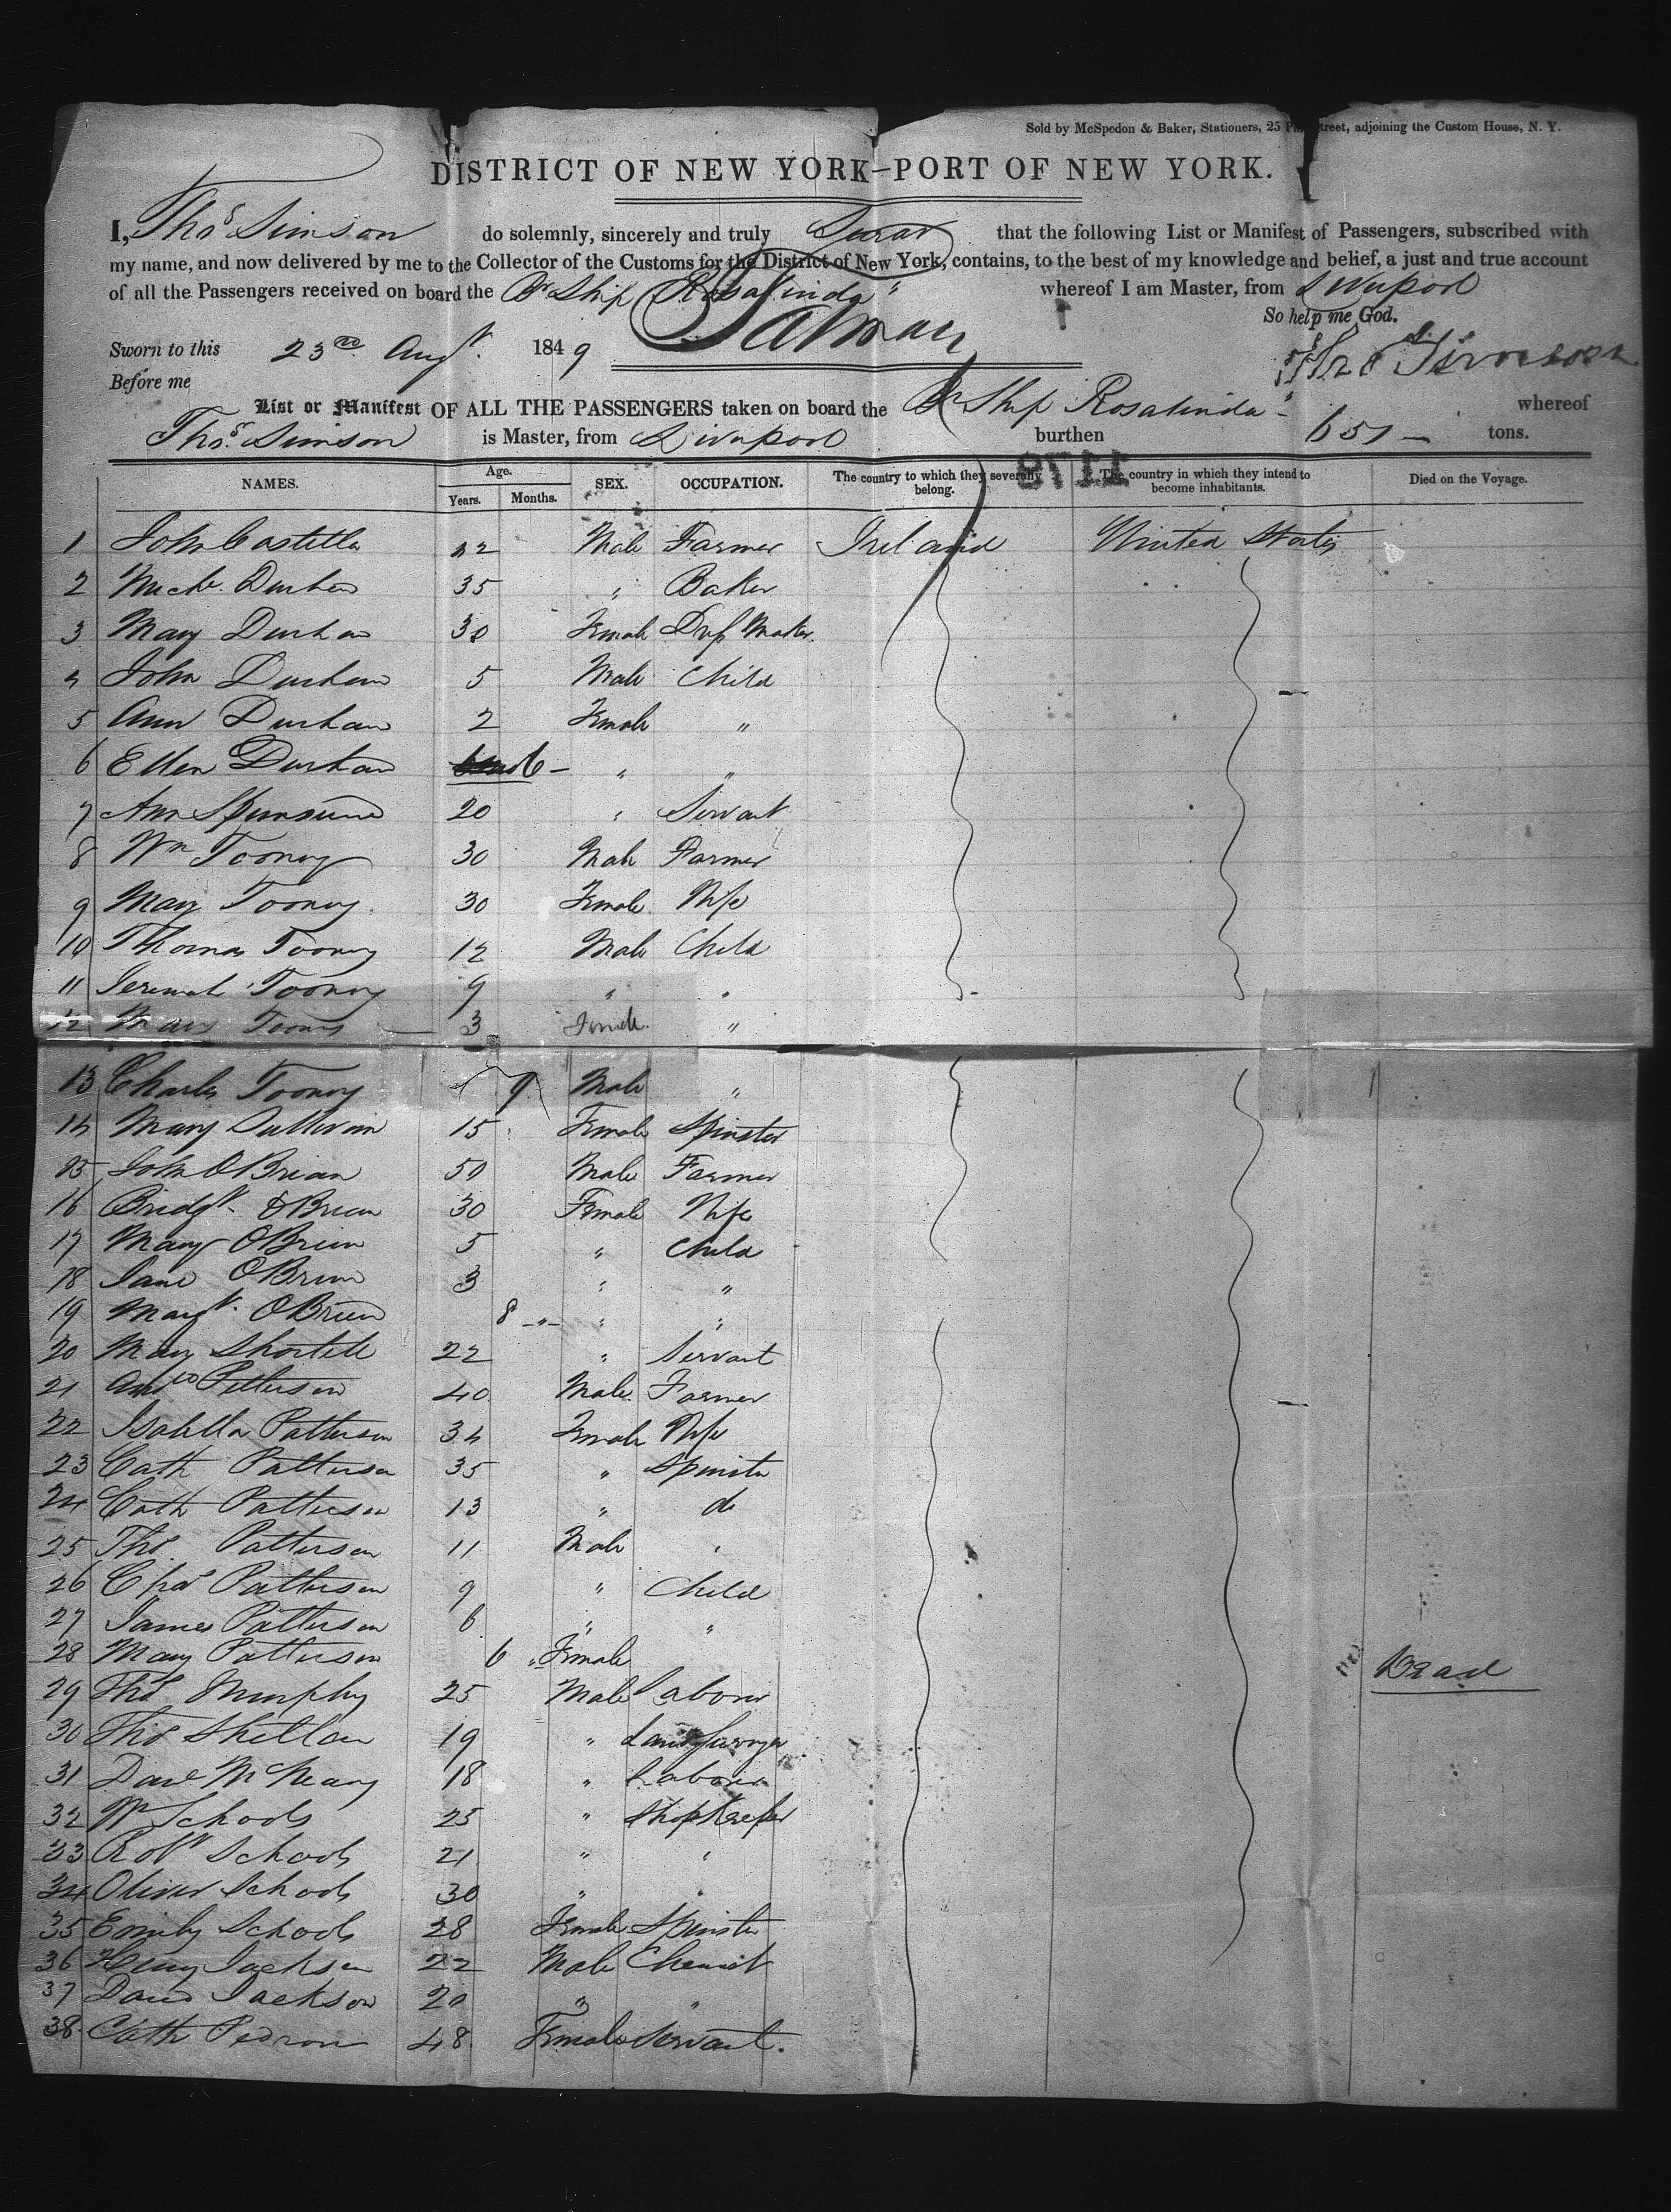 Sold by McSpedon & Baker, Stationers, 25 Street, adjoining the Custom House, N. Y.
DISTRICT OF NEW YORK–PORT OF NEW YORK.
I, Thos Simson do solemnly, sincerely and truly Swear that the following List or Manifest of Passengers, subscribed with
my name, and now delivered by me to the Collector of the Customs for the District of New York, contains, to the best of my knowledge and belief, a just and true account
of all the Passengers received on board the Br Ship Rosalinda" whereof I am Master, from Liverpool
So help me God.
Sworn to this 23rd Augt. 1849
Before me
List or Manifest OF ALL THE PASSENGERS taken on board the Br Ship Rosalinda" whereof
Thos Simson is Master, from Liverpool burthen 651 tons.
NAMES. Age. Years. Months. SEX. OCCUPATION. The country to which they severally belong. The country in which they intend to become inhabitants. Died on the Voyage.
1 John Costello 22 Male Farmer Ireland United States
2 Michl. Durham 35 " Baker
3 Mary Durham 30 Female Dress Maker
4 John Durham 5 Male Child
5 Ann Durham 2 Female "
6 Ellen Durham 6 " "
7 Ann 20 " Servant
8 Wm Toomy 30 Male Farmer
9 Mary Toomy 30 Female Wife
10 Thomas Toomy 12 Male Child
11 Jeremiah Toomy 9 " "
12 Mary Toomy 3 Female "
13 Charles Toomy 9 Male "
14 Mary Sullivan 15 Female Spinster
15 John OBrian 50 Male Farmer
16 Bridgt OBrien 30 Female Wife
17 Mary OBrien 5 " Child
18 Jane OBrien 3 " "
19 Margt. OBrien 8 " " "
20 Mary Shortell 22 " Servant
21 Andw Patterson 40 Male Farmer
22 Isabella Patterson 34 Female Wife
23 Cath Patterson 35 " Spinster
24 Cath Patterson 13 " do
25 Thos. Patterson 11 Male "
26 Chas Patterson 9 " Child
27 James Patterson 6 " "
28 Mary Patterson 6 " Female Dead
29 Thos Murphy 25 Male Laborer
30 Thos 19 " Land Surveyor
31 18 " Laborer
32 Wm Schools 25 " Shop Keeper
33 Robt Schools 21 " "
34 Oliver Schools 30 " "
35 Emily Schools 28 Female Spinster
36 Henry Jackson 22 Male Chemist
37 David Jackson 20 " "
38 Cath 48 Female Servant.